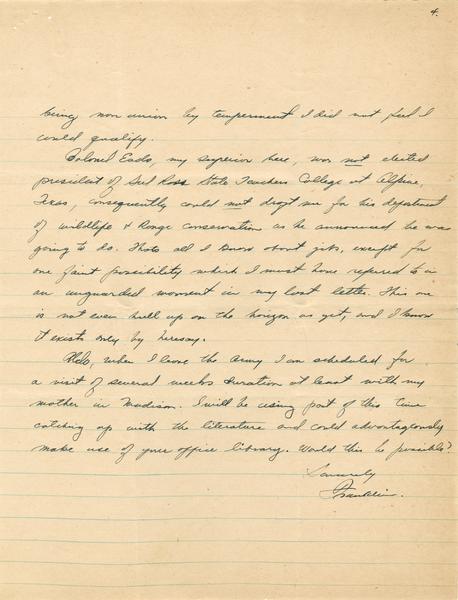 4.
being non union by temperment I did not feel I
could qualify.
Colonel Eads, my superior here, was not elected
president of Sul Ross State Teachers College at Alpine,
Texas, consequently could not draft me for his department
of wildlife & Range conservation as he announced he was
going to do. Thats all I know about jobs, except for
one faint possibility which I must have referred to in
an unguarded moment in my last letter. This one
is not even hull up on the horizon as yet, and I know
it exists only by heresay.
Aldo, when I leave the army I am scheduled for
a visit of several weeks duration at least with my
mother in Madison. I will be using part of this time
catching up with the literature and could advantageously
make use of your office library. Would this be possible?
Sincerely
Franklin.